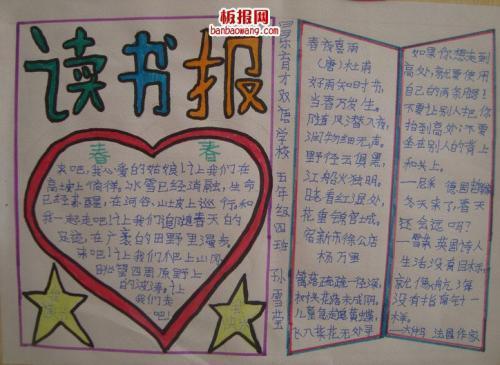 板报网
banbaowang.com
读书报
春 春
来吧,我心爱的姑娘!让我们在
高坡上倘徉。冰雪已经消融,生命
已经苏醒,在河谷、山坡上巡行,和
我一起走吧!让我们追随春天的
足迹,在广袤的田野里漫步。
来吧!让我们爬上山冈,
眺望四周原野
的波涛。让
我们去
吧!
育才双语学校 五年级四班 孙雪莹
春夜喜雨
(唐)杜甫
好雨知时节,
当春乃发生。
随风潜入夜,
润物细无声。
野径云俱黑,
江船火独明。
晓看红湿处,
花重锦官城。
宿新市徐公店
杨万里
篱落疏疏一径深,
树头花落未成阴。
儿童急走追黄蝶,
飞入菜花无处寻。
如果你想走到
高处,就要使用
自己的两条腿!
不要让别人把你
抬到高处;不要
坐在别人的背上
和头上。
——尼采 德国
冬天来了,春天
还会远吗?
——雪莱 英国诗人
生活没有目标,
就像航海
没有指南针一
样。
——大仲马 法国作家